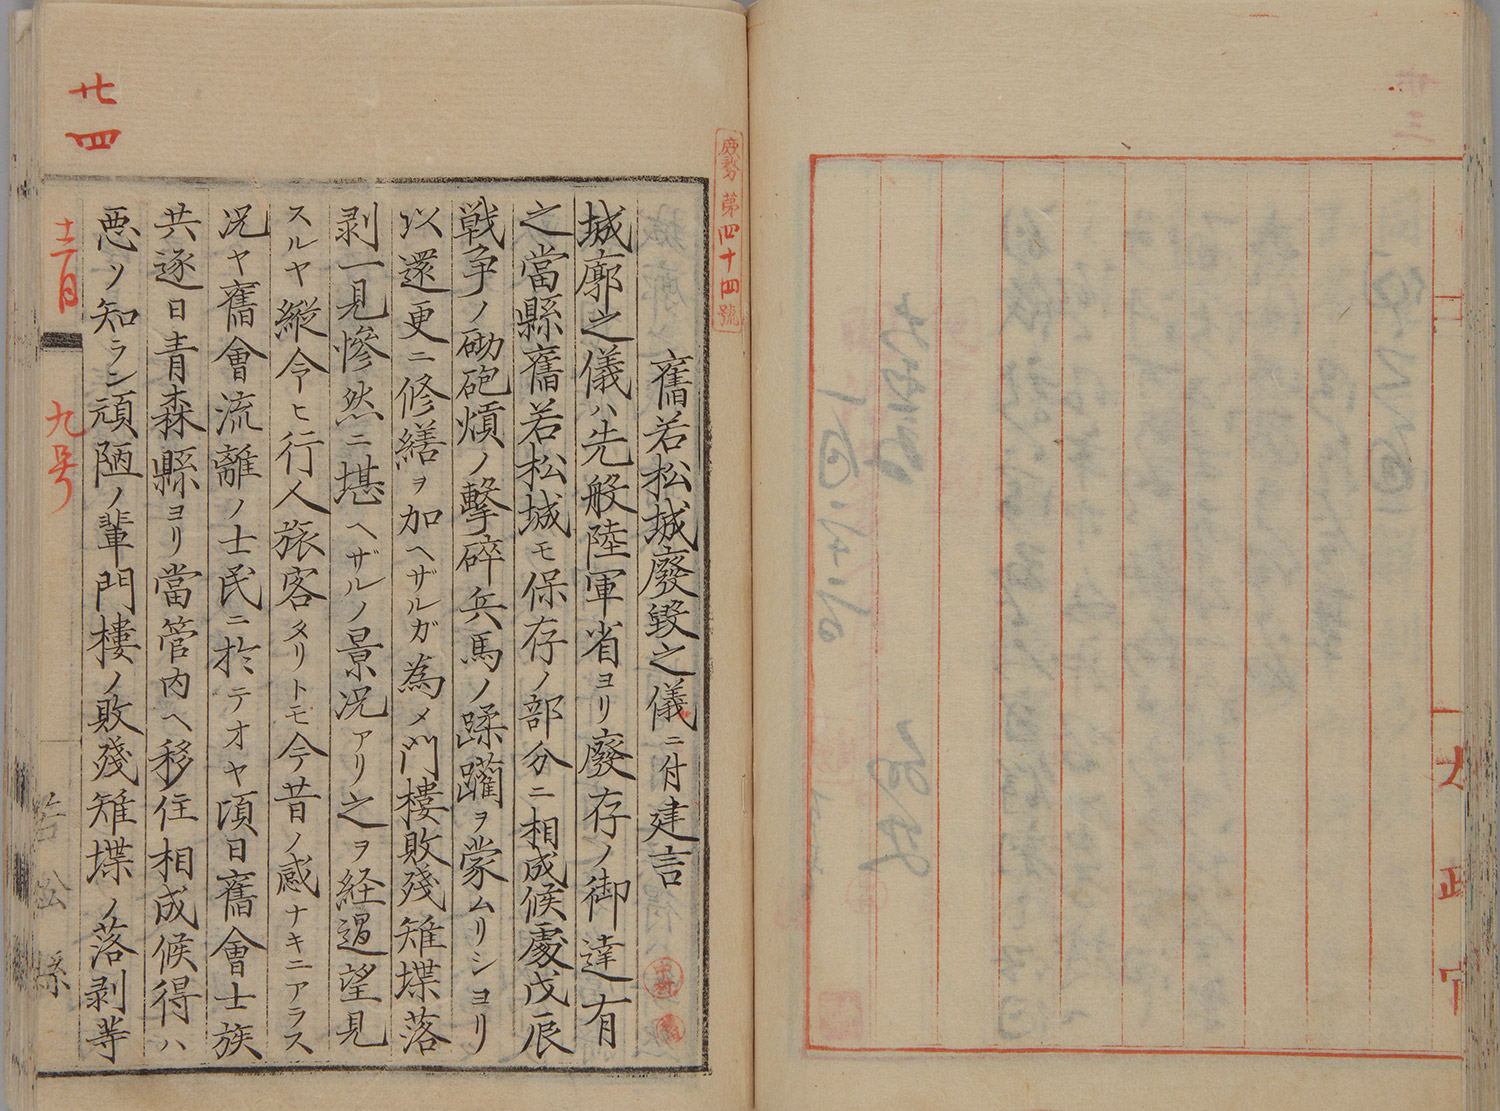 太政官
慶務第四十四號
舊若松城廢毀之儀ニ付建言
城廓之儀ハ先般陸軍省ヨリ廢存ノ御達有
之當縣舊若松城モ保存ノ部分ニ相成候處戊辰
戦争ノ砌砲熕ノ擊碎兵馬ノ蹂躪ヲ蒙ムリシヨリ
以還更ニ修繕ヲ加ヘザルガ為メ門樓敗殘雉堞落
剥一見慘然ニ堪ヘザルノ景況アリ之ヲ経過望見
スルヤ縱令ヒ行人旅客タリトモ今昔ノ感ナキニアラス
况ヤ舊會流離ノ士民ニ於テオヤ頃日舊會士族
共逐日青森縣ヨリ當管内ヘ移住相成候得ハ
悪ソ知ラン頑陋ノ輩門樓ノ敗殘雉堞ノ落剥等
廿四
十二月
九号
若松縣